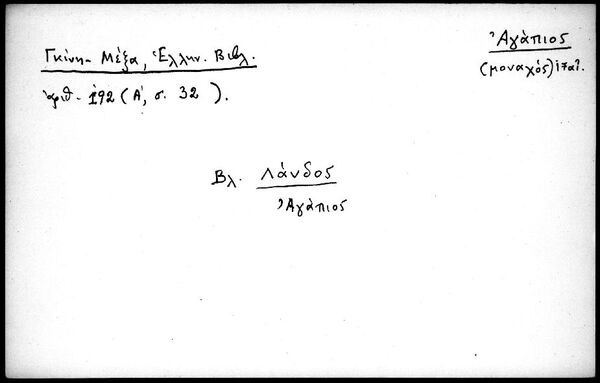 Ἀγάπιος
(μοναχός)
Γκίνη-Μέξα, Ἑλλην. Βιβλ.
ἀριθ. 192 (Α΄, σ. 32 ).
Βλ. Λάνδος
Ἀγάπιος